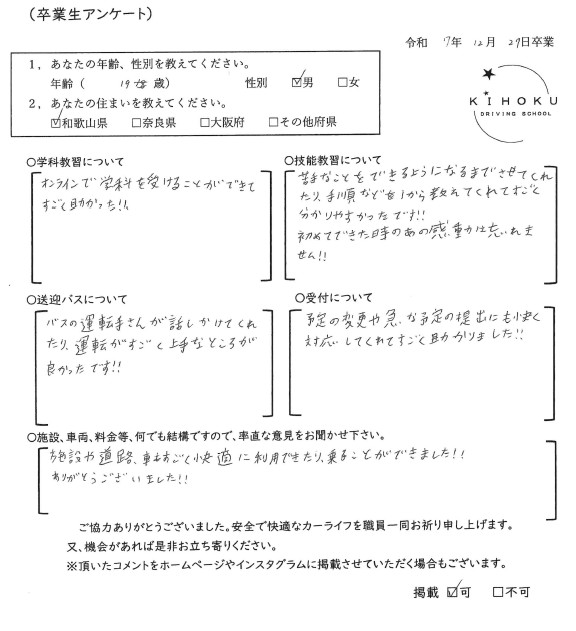 （卒業生アンケート）
令和 7年 12月 27日卒業
1，あなたの年齢、性別を教えてください。
年齢（ 19 歳） 性別 ☑男 □女
2，あなたの住まいを教えてください。
☑和歌山県 □奈良県 □大阪府 □その他府県
KIHOKU
DRIVING SCHOOL
○学科教習について
オンラインで学科を受けることができて
すごく助かった!!
○技能教習について
苦手なことをできるようになるまでさせてくれ
たり、手順など1から教えてくれてすごく
分かりやすかったです!!
初めてできた時のあの感動は忘れれま
せん!!
○送迎バスについて
バスの運転手さんが話しかけてくれ
たり、運転がすごく上手なところが
良かったです!!
○受付について
予定の変更や急な予定の提出にも快く
対応してくれてすごく助かりました!!
○施設、車両、料金等、何でも結構ですので、率直な意見をお聞かせ下さい。
施設や道路、車もすごく快適に利用できたり、乗ることができました!!
ありがとうございました!!
ご協力ありがとうございました。安全で快適なカーライフを職員一同お祈り申し上げます。
又、機会があれば是非お立ち寄りください。
※頂いたコメントをホームページやインスタグラムに掲載させていただく場合もございます。
掲載 ☑可 □不可